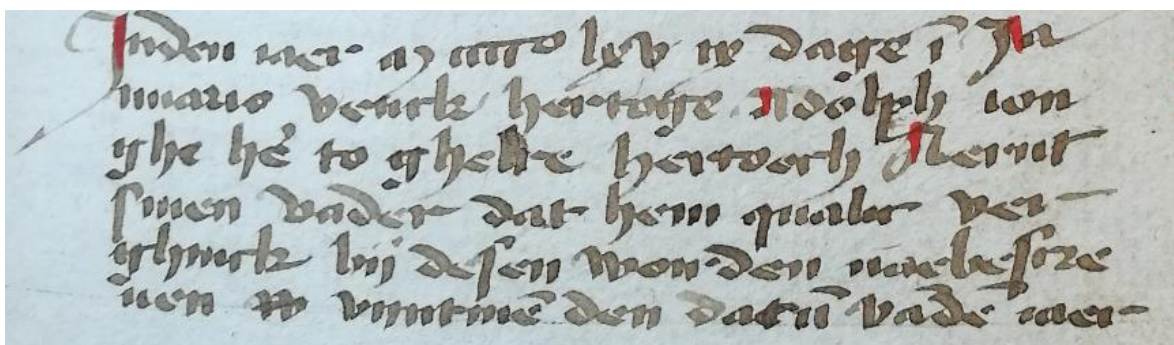 Inden iaer m iiiiᶜ lxv ix dage ī Ja
nuario venck hertoge Adolph ion
ghe hē to ghelre hertoech Aernt
sinen vader dat hem qualic ver
ghinck bij desen worden naebescre
uen vyntmē den datū vādē iaer